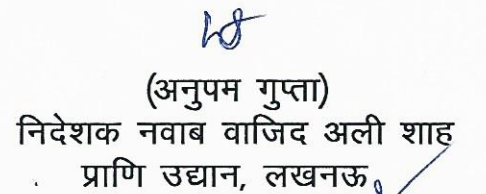 (अनुपम गुप्ता)
निदेशक नवाब वाजिद अली शाह
प्राणि उद्यान, लखनऊ